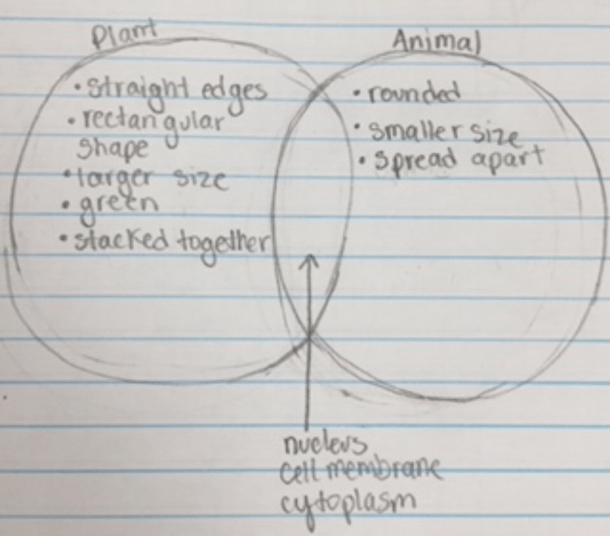 Plant
• straight edges
• rectangular
shape
• larger size
• green
• stacked together
Animal
• rounded
• smaller size
• spread apart
nucleus
cell membrane
cytoplasm